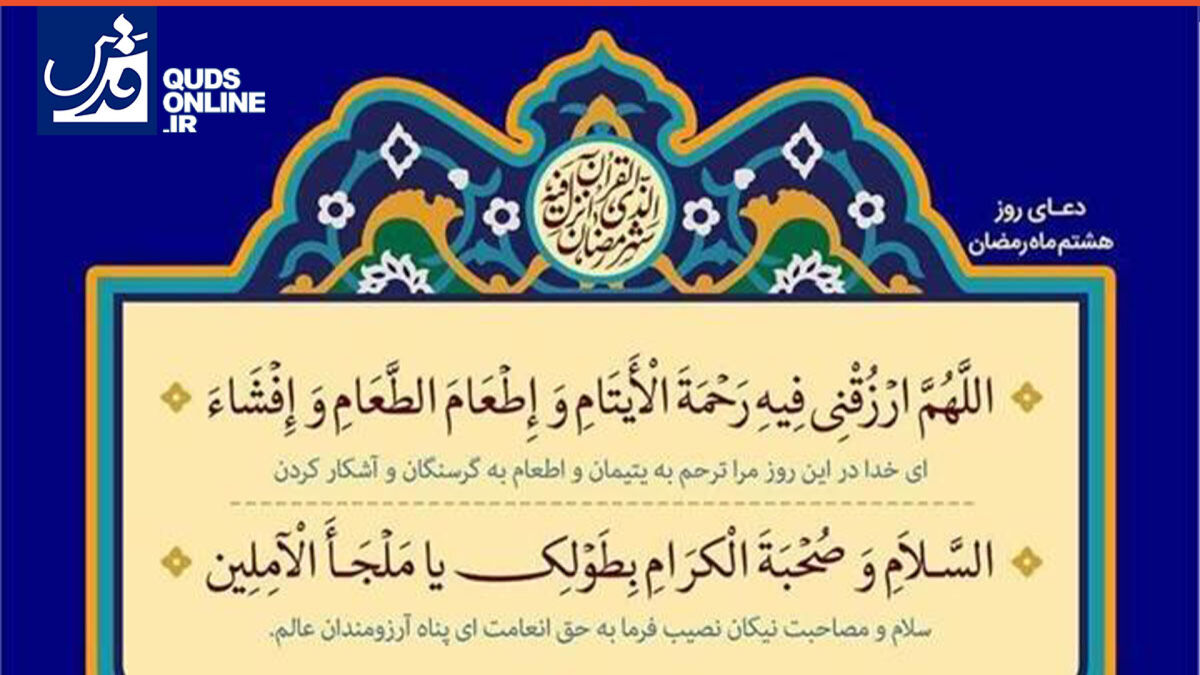 قدس
QUDS
ONLINE
.IR
شهر رمضان الذی انزل فیه القرآن
دعـای روز
هشتم ماه رمضان
اللَّهُمَّ ارْزُقْنِی فِیهِ رَحْمَةَ الْأَیتَامِ وَ إِطْعَامَ الطَّعَامِ وَ إِفْشَاءَ
ای خدا در این روز مرا ترحم به یتیمان و اطعام به گرسنگان و آشکار کردن
السَّلاَمِ وَ صُحْبَةَ الْکرَامِ بِطَوْلِک یا مَلْجَأَ الْآمِلِین
سلام و مصاحبت نیکان نصیب فرما به حق انعامت ای پناه آرزومندان عالم.